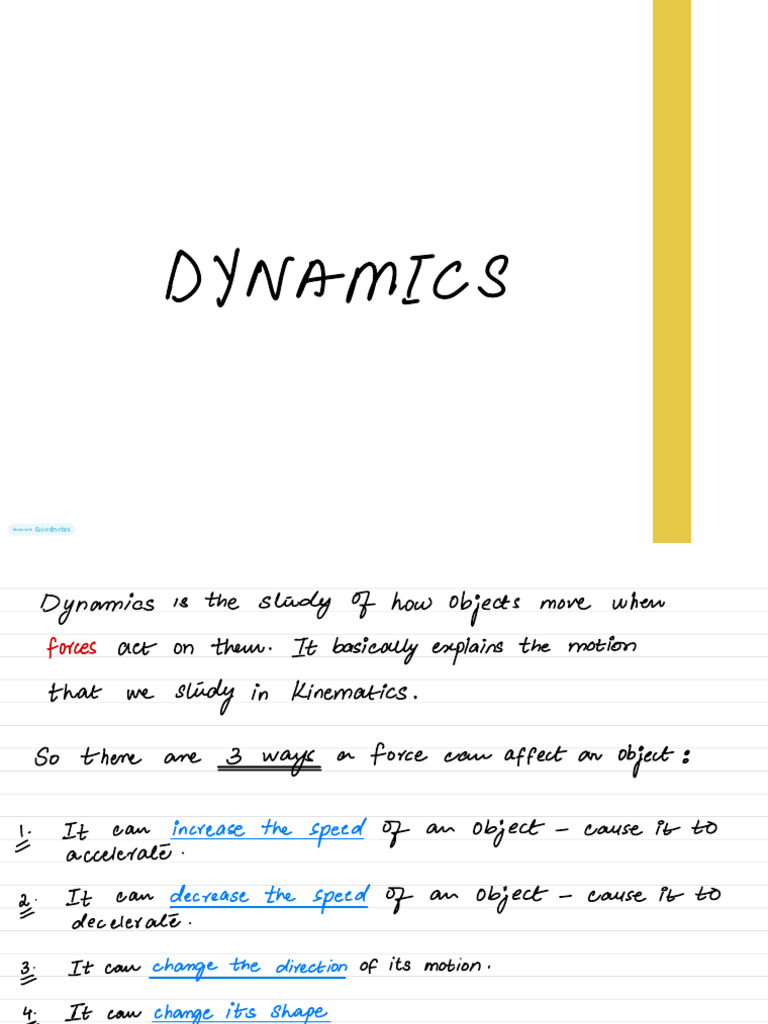 DYNAMICS
Made with Goodnotes
Dynamics is the study of how objects move when
forces act on them. It basically explains the motion
that we study in Kinematics.
So there are 3 ways a force can affect an object:
1. It can increase the speed of an object – cause it to
accelerate.
2. It can decrease the speed of an object – cause it to
decelerate.
3. It can change the direction of its motion.
4. It can change its shape